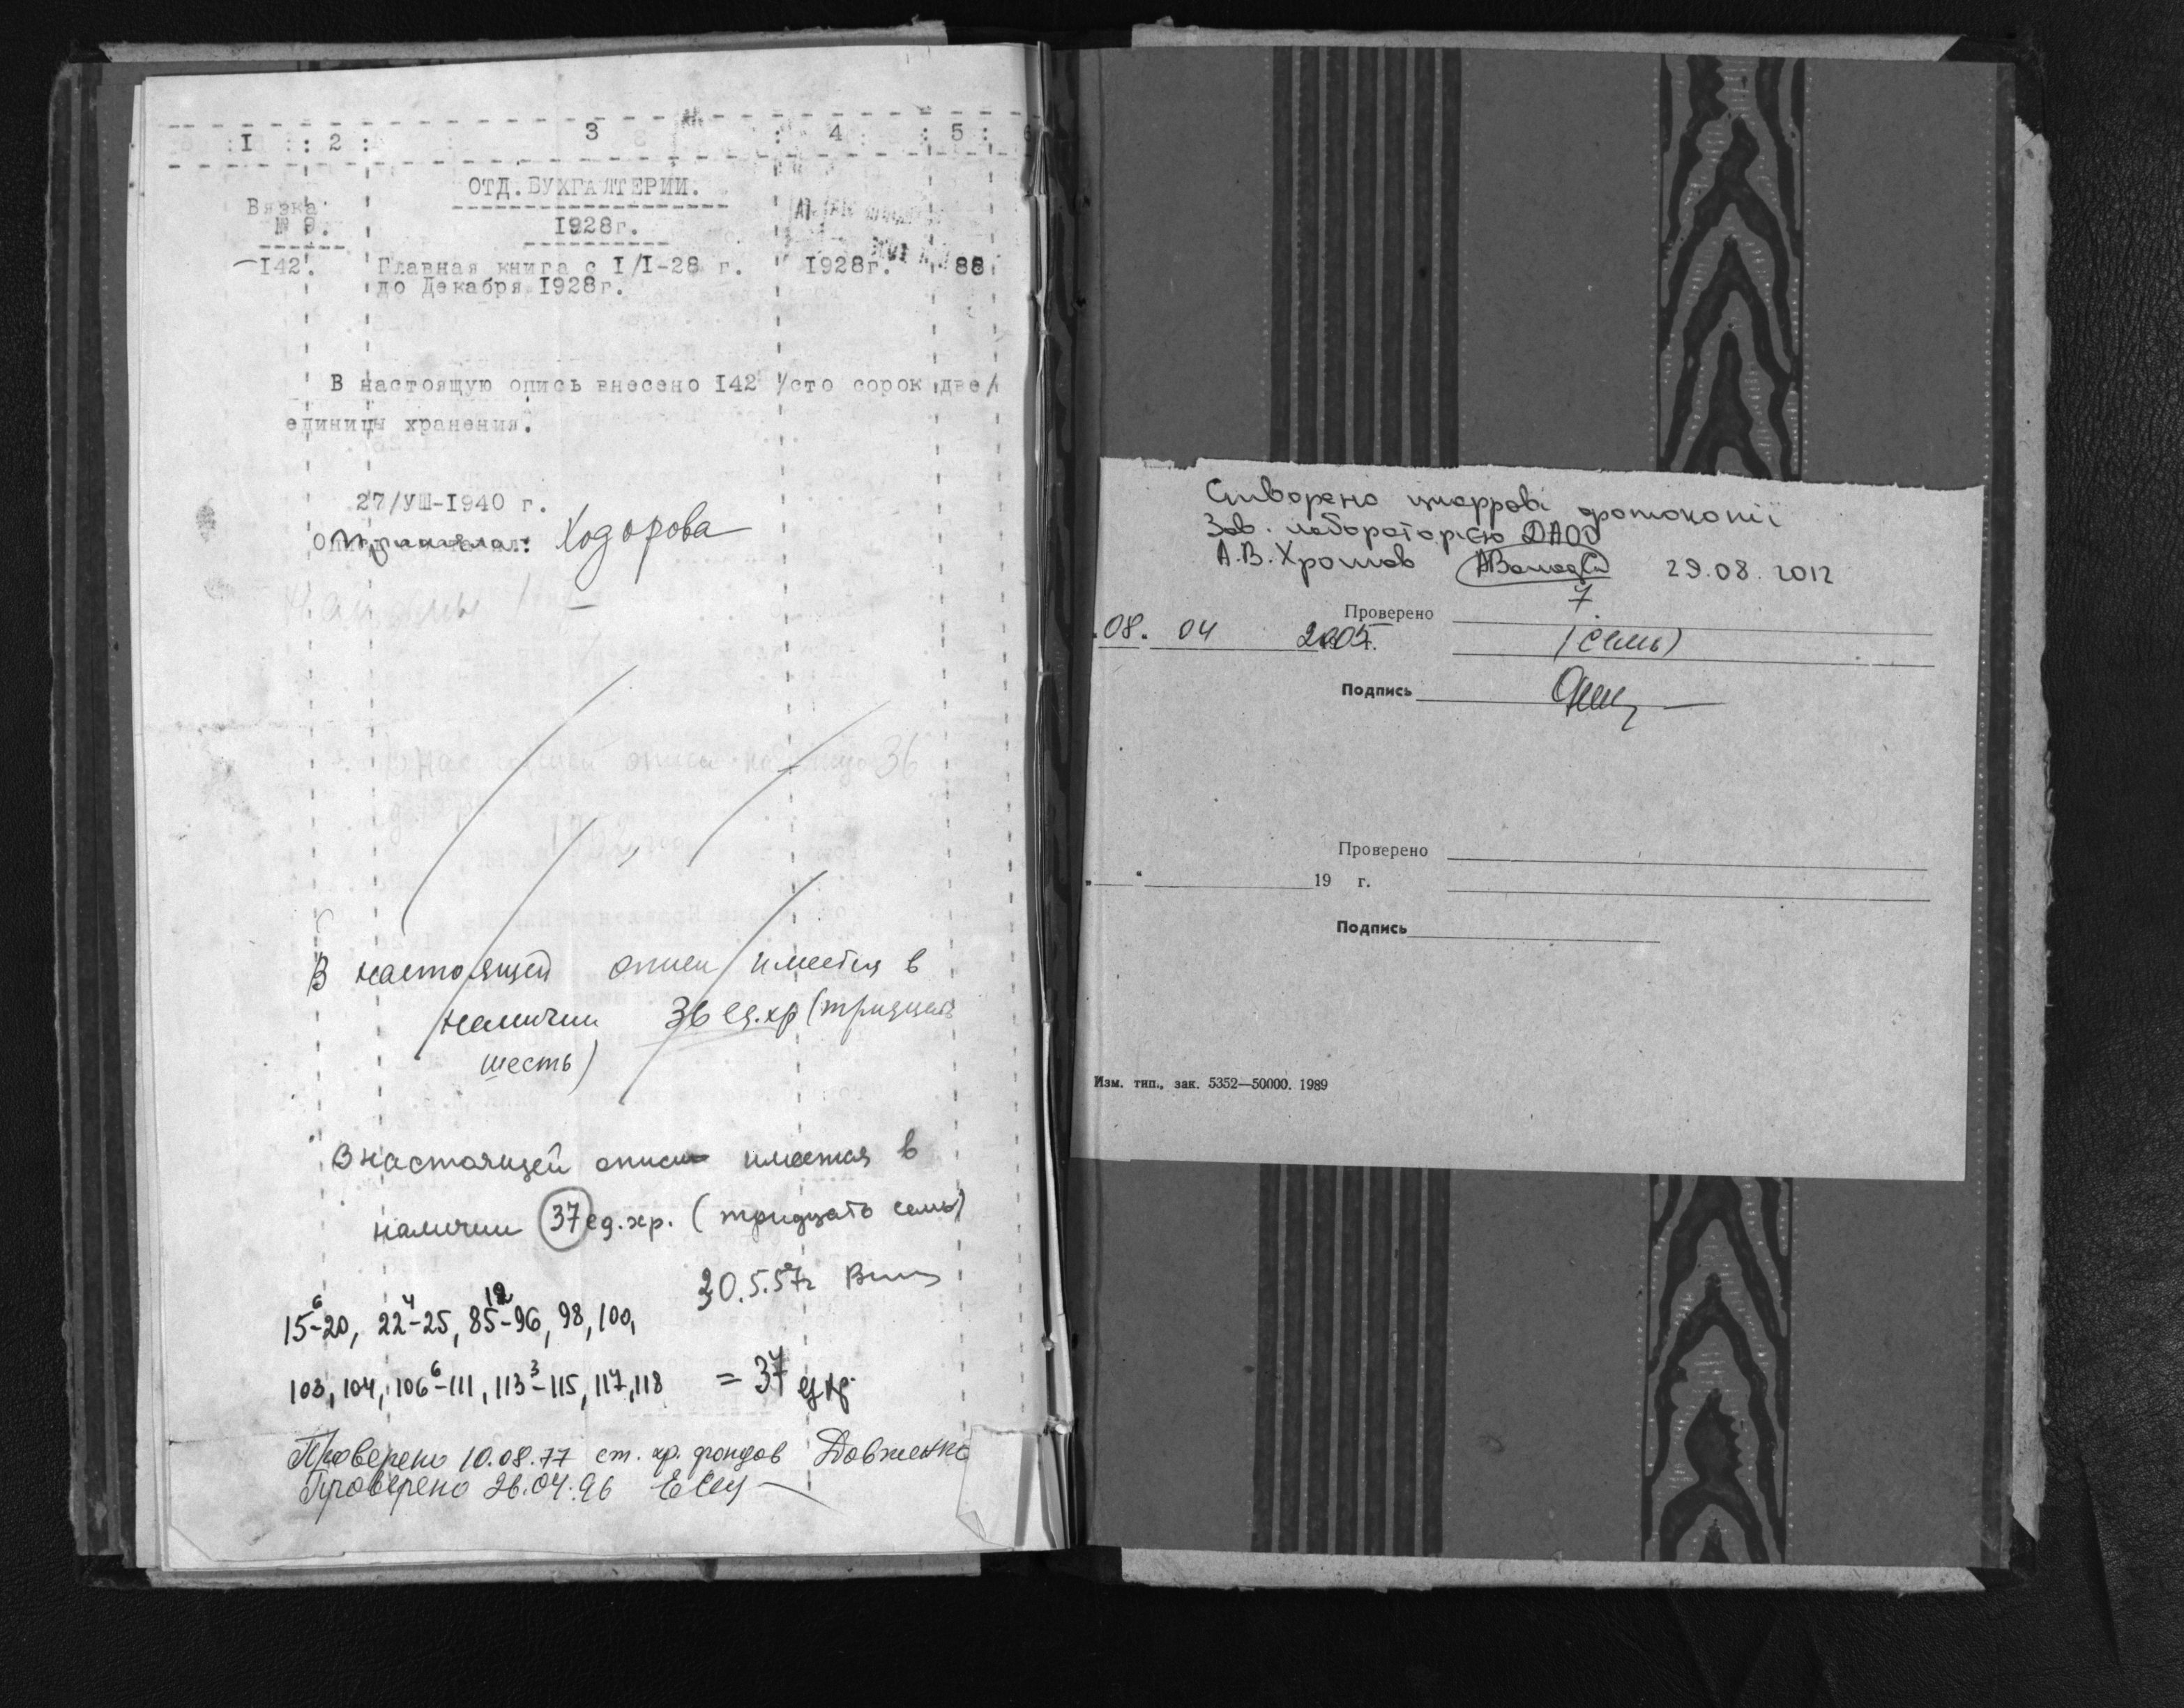 1 : 2 : 3 : 4 : 5 : 6
ОТД. БУХГАЛТЕРИИ.
Вязка
№ 9.
1928г.
142. Главная книга с I/I-28 г. 1928г. 88
до Декабря 1928г.
В настоящую опись внесено 142 /сто сорок две/
единицы хранения.
27/УШ-1940 г.
Ходорова
В настоящей описи имеется в
наличии 36 ед.хр (тридцать
шесть)
В настоящей описи имеется в
наличии 37 ед.хр. (тридцать семь)
30.5.57г
6 4 12
15-20, 22-25, 85-96, 98, 100,
6 3
103, 104, 106-111, 113-115, 117, 118 = 37 ед хр.
Проверено 10.08.77 ст. хр. фондов Довженко
Проверено 26.04.96
Створено цифрові фотокопії
Зав. лабораторією ДАОО
А.В. Хромов 29.08.2012
Проверено 7
.08. 04 2005г. (семь)
Подпись
Проверено
„ “ 19 г.
Подпись
Изм. тип., зак. 5352—50000. 1989